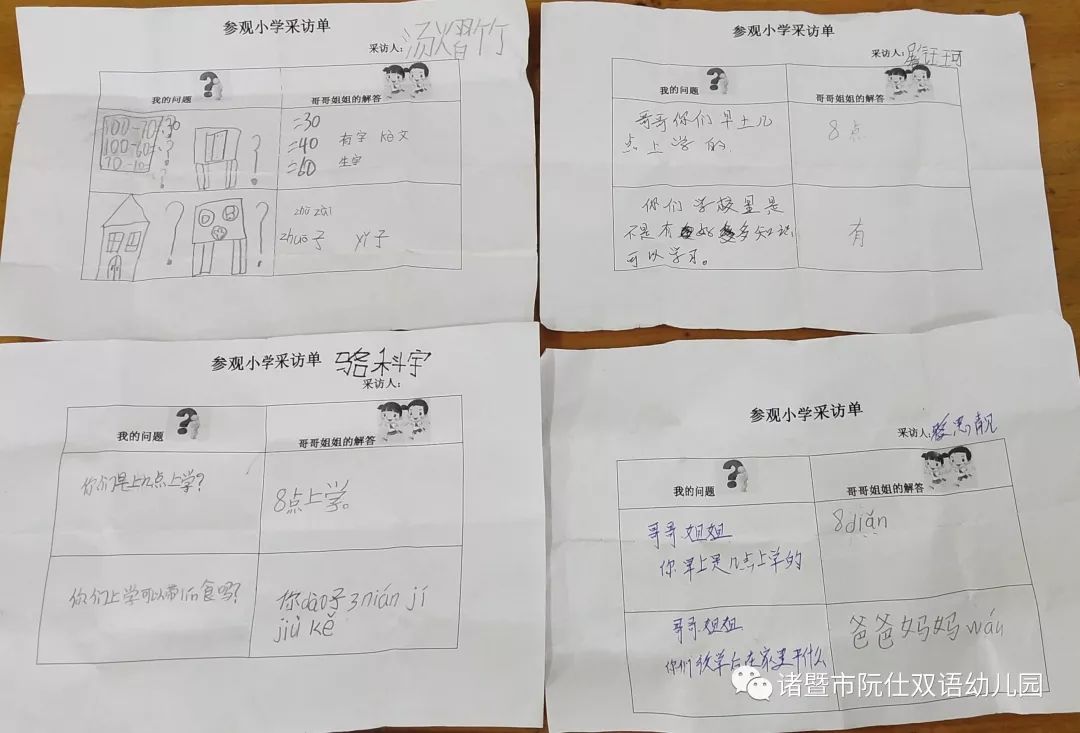 参观小学采访单
采访人：
我的问题
哥哥姐姐的解答
100-70=30
100-60=?
70-10=?
=30
=40 有字 koo文
=60 生字
zhuō子 yǐ子
参观小学采访单
采访人：
我的问题
哥哥姐姐的解答
哥哥你们早上几
点上学的
8点
你们学校里是
不是有好多知识
可以学习。
有
参观小学采访单
采访人：骆科宇
我的问题
哥哥姐姐的解答
你们是上几点上学?
8点上学。
你们上学可以带 食吗?
你dào子3nián jí
jiù kě
参观小学采访单
采访人：
我的问题
哥哥姐姐的解答
哥哥.姐姐
你早上是几点上学的
8diǎn
哥哥.姐姐
你们放学后在家里干什么
爸爸妈妈wán
诸暨市阮仕双语幼儿园